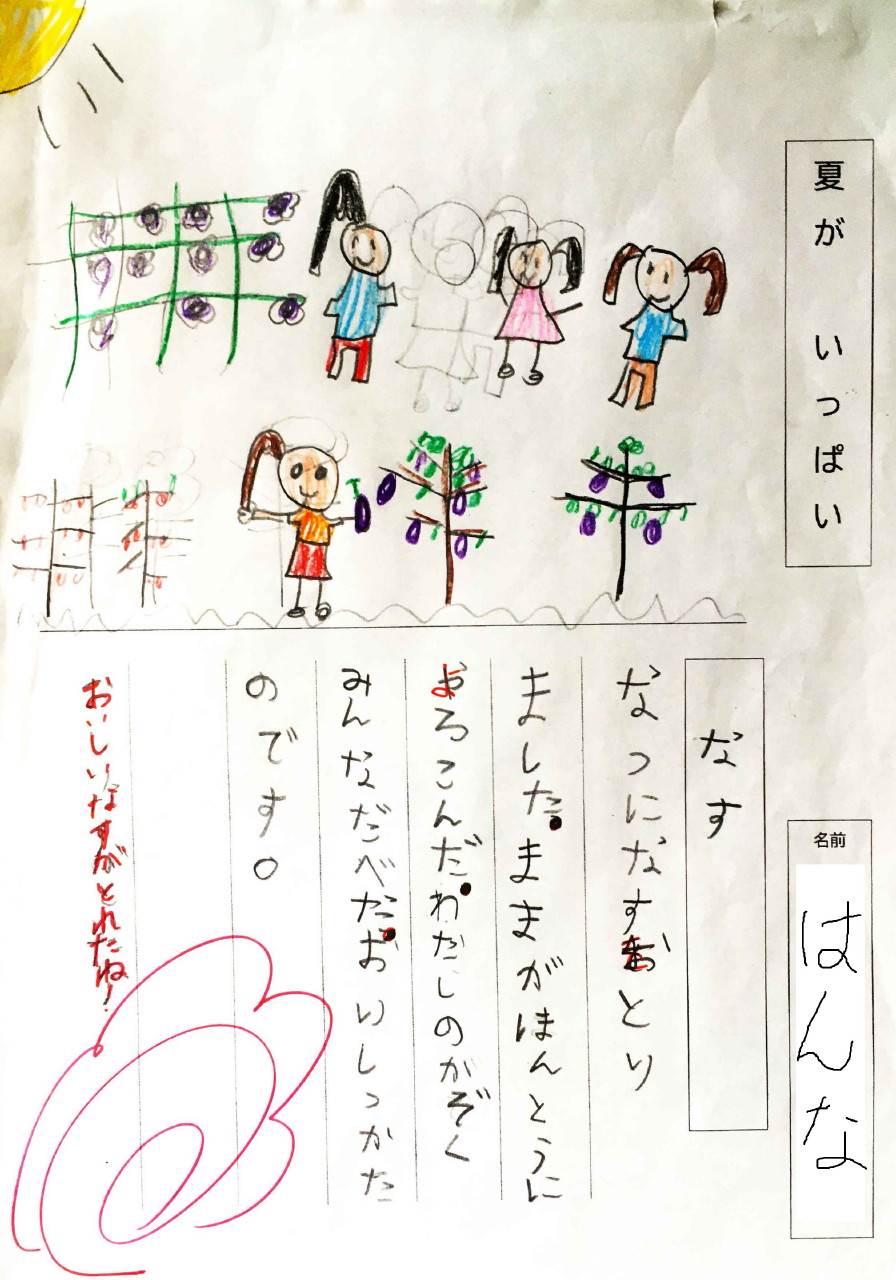 夏が いっぱい
名前
はんな
なす
なつになすをとり
ました。ままがほんとうに
よろこんだ。わたしのかぞく
みんなだべた。おいしっかた
のです。
おいしいなすがとれたね!